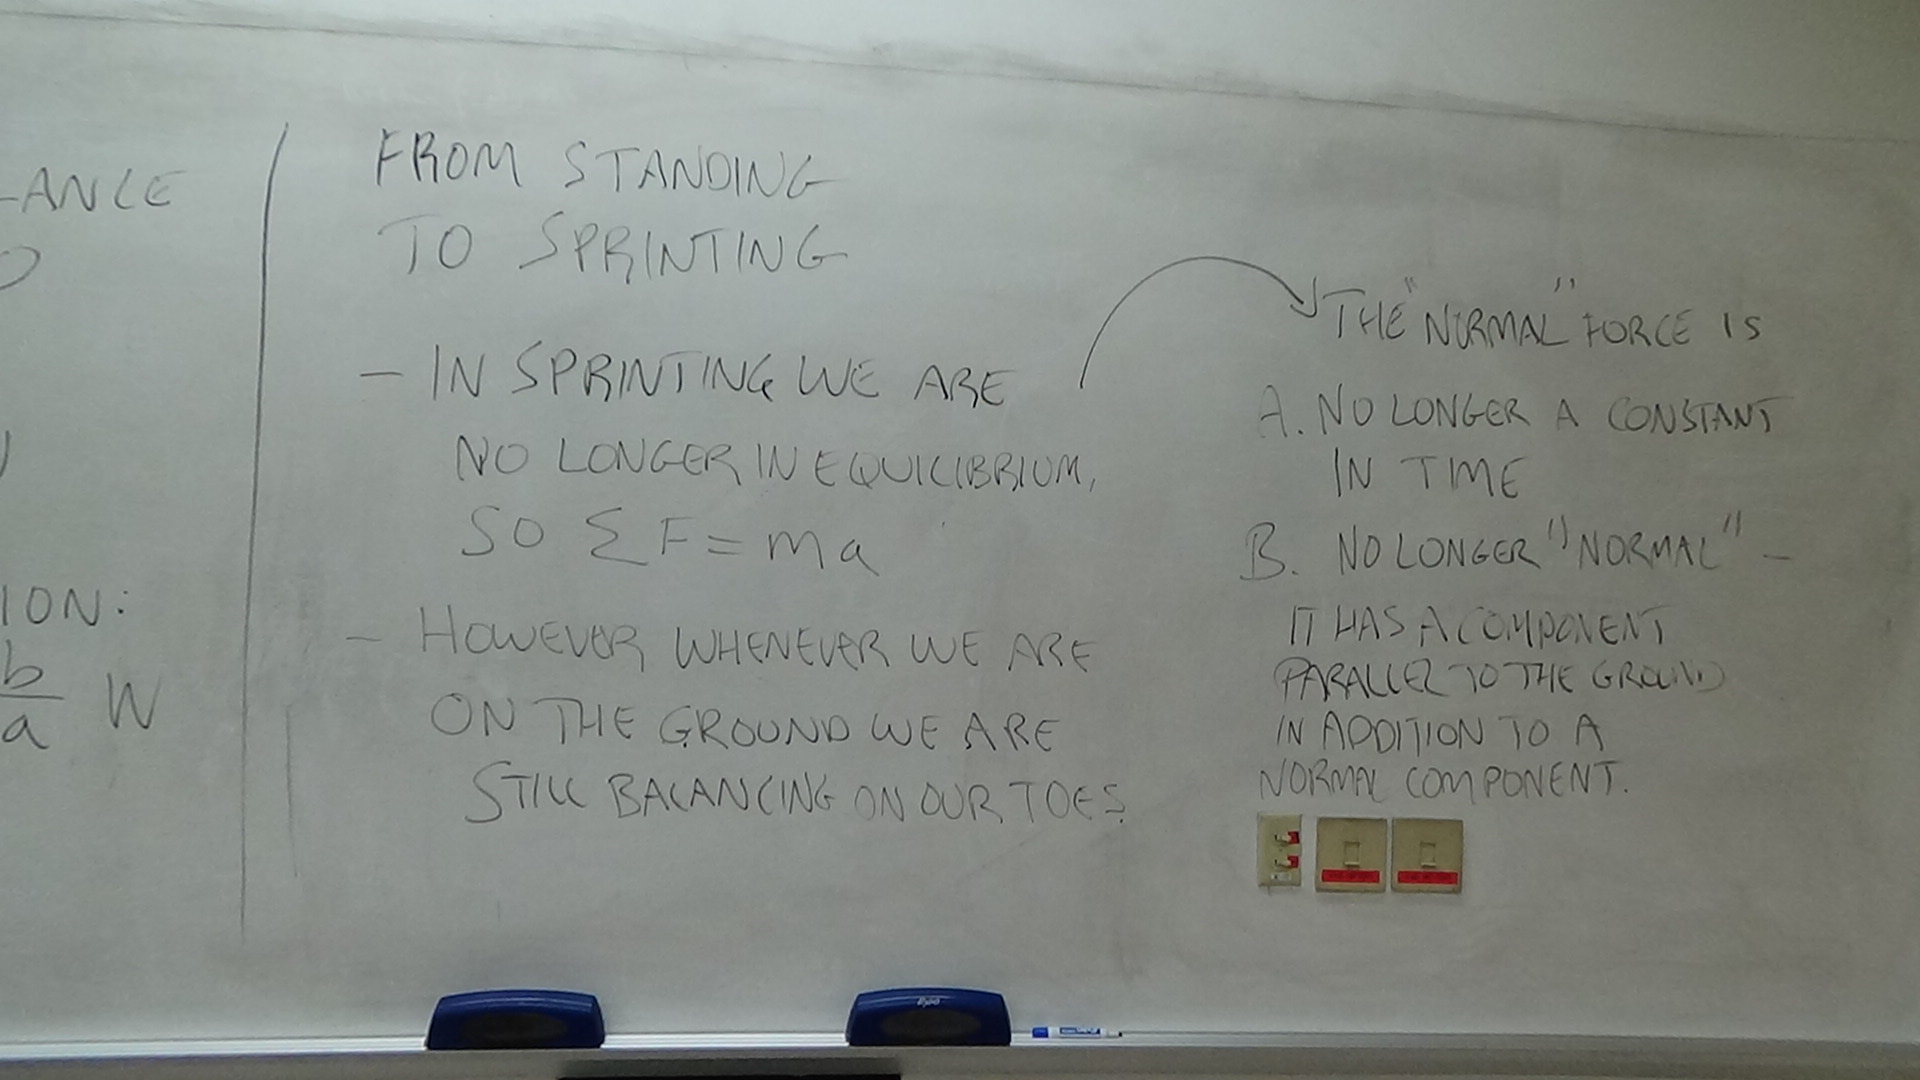 ANCE
ION:
b
a W
FROM STANDING
TO SPRINTING
- IN SPRINTING WE ARE
NO LONGER IN EQUILIBRIUM,
SO ΣF = ma
- HOWEVER WHENEVER WE ARE
ON THE GROUND WE ARE
STILL BALANCING ON OUR TOES.
THE "NORMAL" FORCE IS
A. NO LONGER A CONSTANT
IN TIME
B. NO LONGER "NORMAL" -
IT HAS A COMPONENT
PARALLEL TO THE GROUND
IN ADDITION TO A
NORMAL COMPONENT.